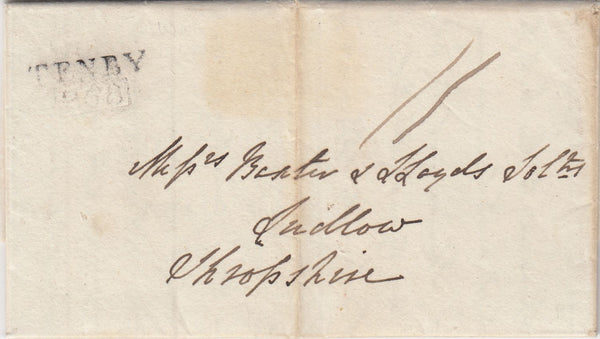 TENBY
268
11
Messrs Baxter & Lloyds Solrs
Ludlow
Shropshire